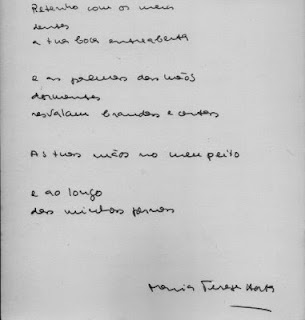 Retenho com os meus
dentes
a tua boca entreaberta
e as palmas das mãos
dormentes
resvalam brandas e certas
As tuas mãos no meu peito
e ao longo
das minhas pernas
Maria Teresa Horta